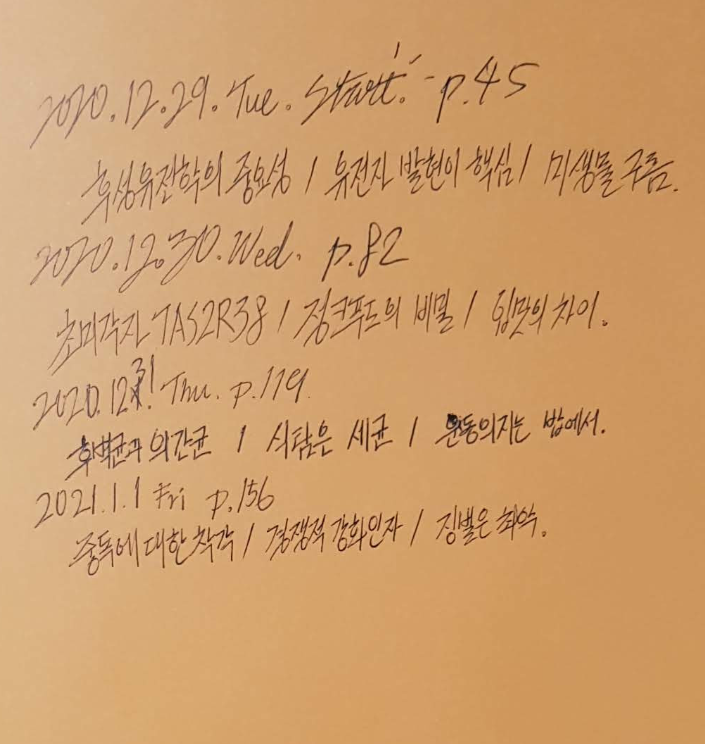 2020.12.29.Tue. Start! - p.45
후성유전학의 중요성 / 유전자 발현이 핵심 / 미생물 구름.
2020.12.30.Wed. p.82
초미각자 TAS2R38 / 정크푸드의 비밀 / 입맛의 차이.
2020.12.31. Thu. p.179.
후벽균과 의간균 / 식탐은 세균 / 운동의지는 밥에서.
2021.1.1 Fri p.156
중독에 대한 착각 / 경쟁적 강화인자 / 징벌은 최악.